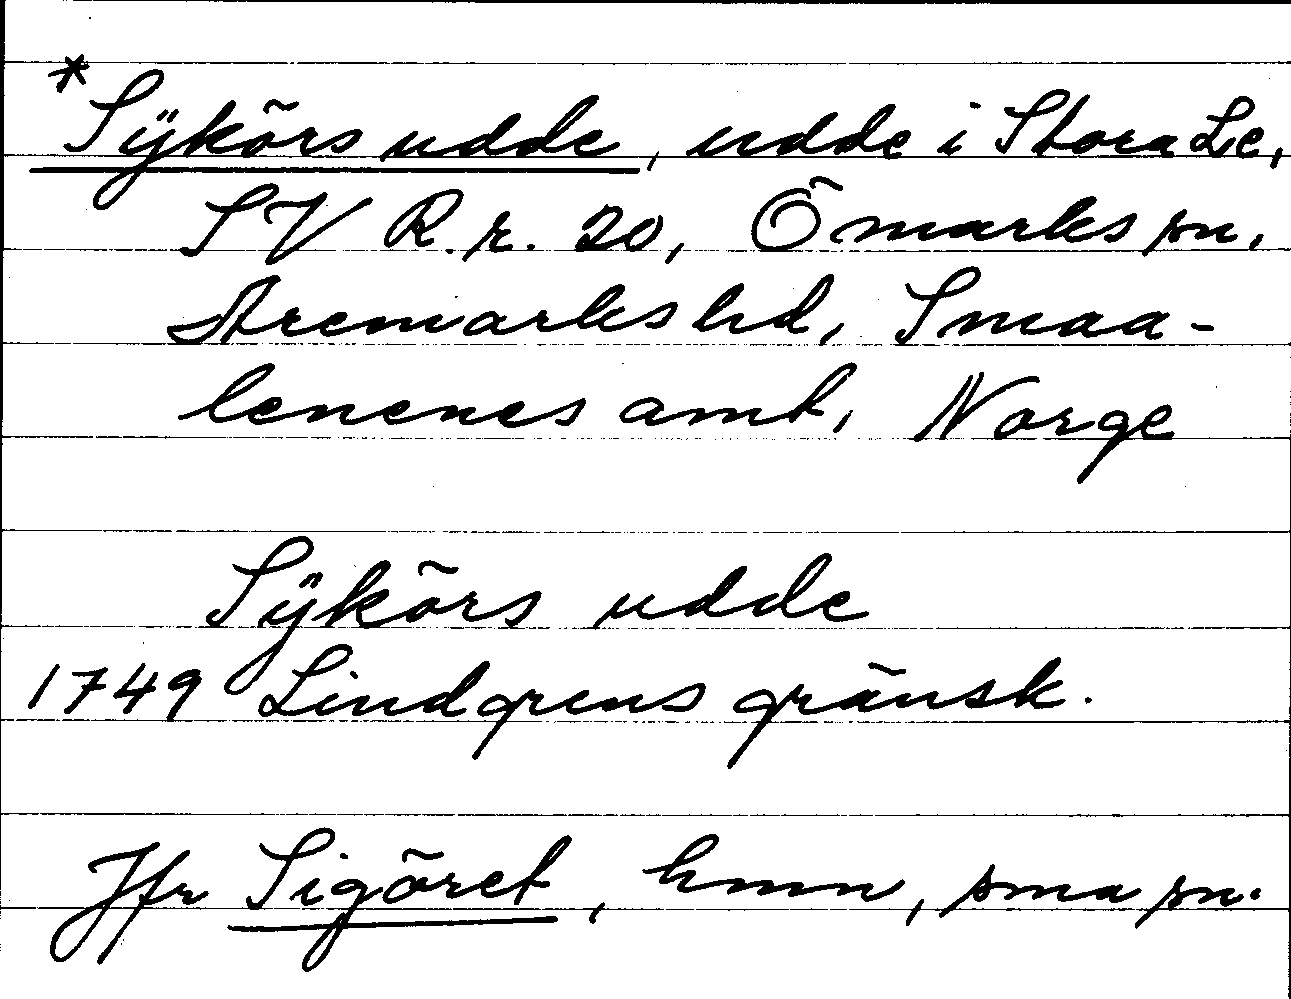 *Sÿkörs udde, udde i Stora Le,
SV R.r. 20, Ömarks sn,
Aremarks hd, Smaa-
lenenes amt, Norge
Sÿkörs udde
1749 Lindgrens gränsk.
Jfr Sigöret, hmn, sma sn.